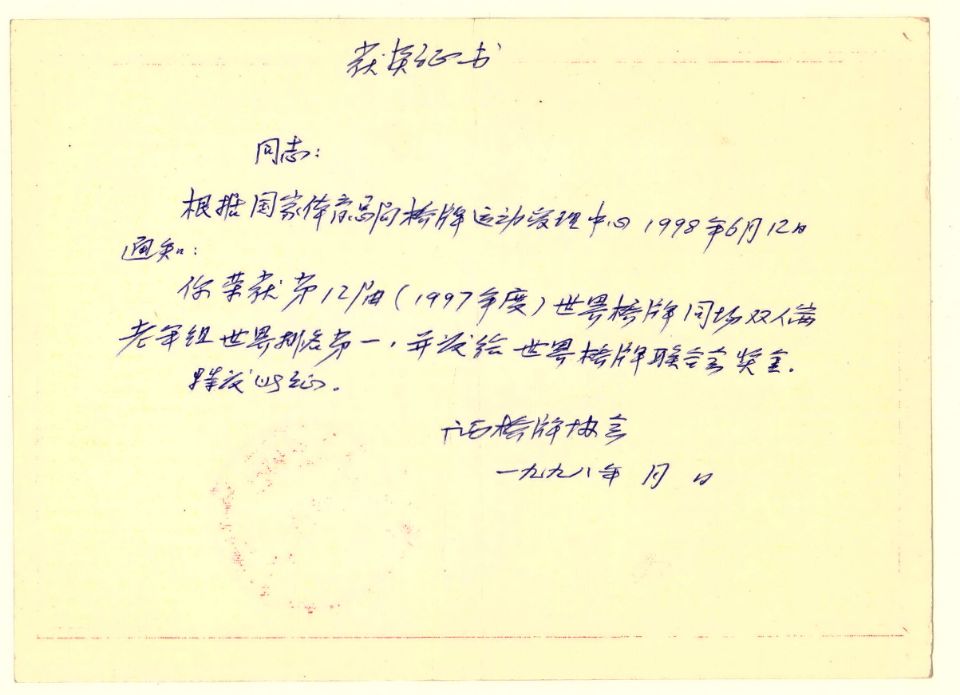 获奖证书
同志:
根据国家体育总局桥牌运动管理中心1998年6月12日
通知:
你荣获第12届(1997年度)世界桥牌同场双人赛
老年组世界排名第一,并发给世界桥牌联合会奖金.
特发此证.
桥牌协会
一九九八年 月 日